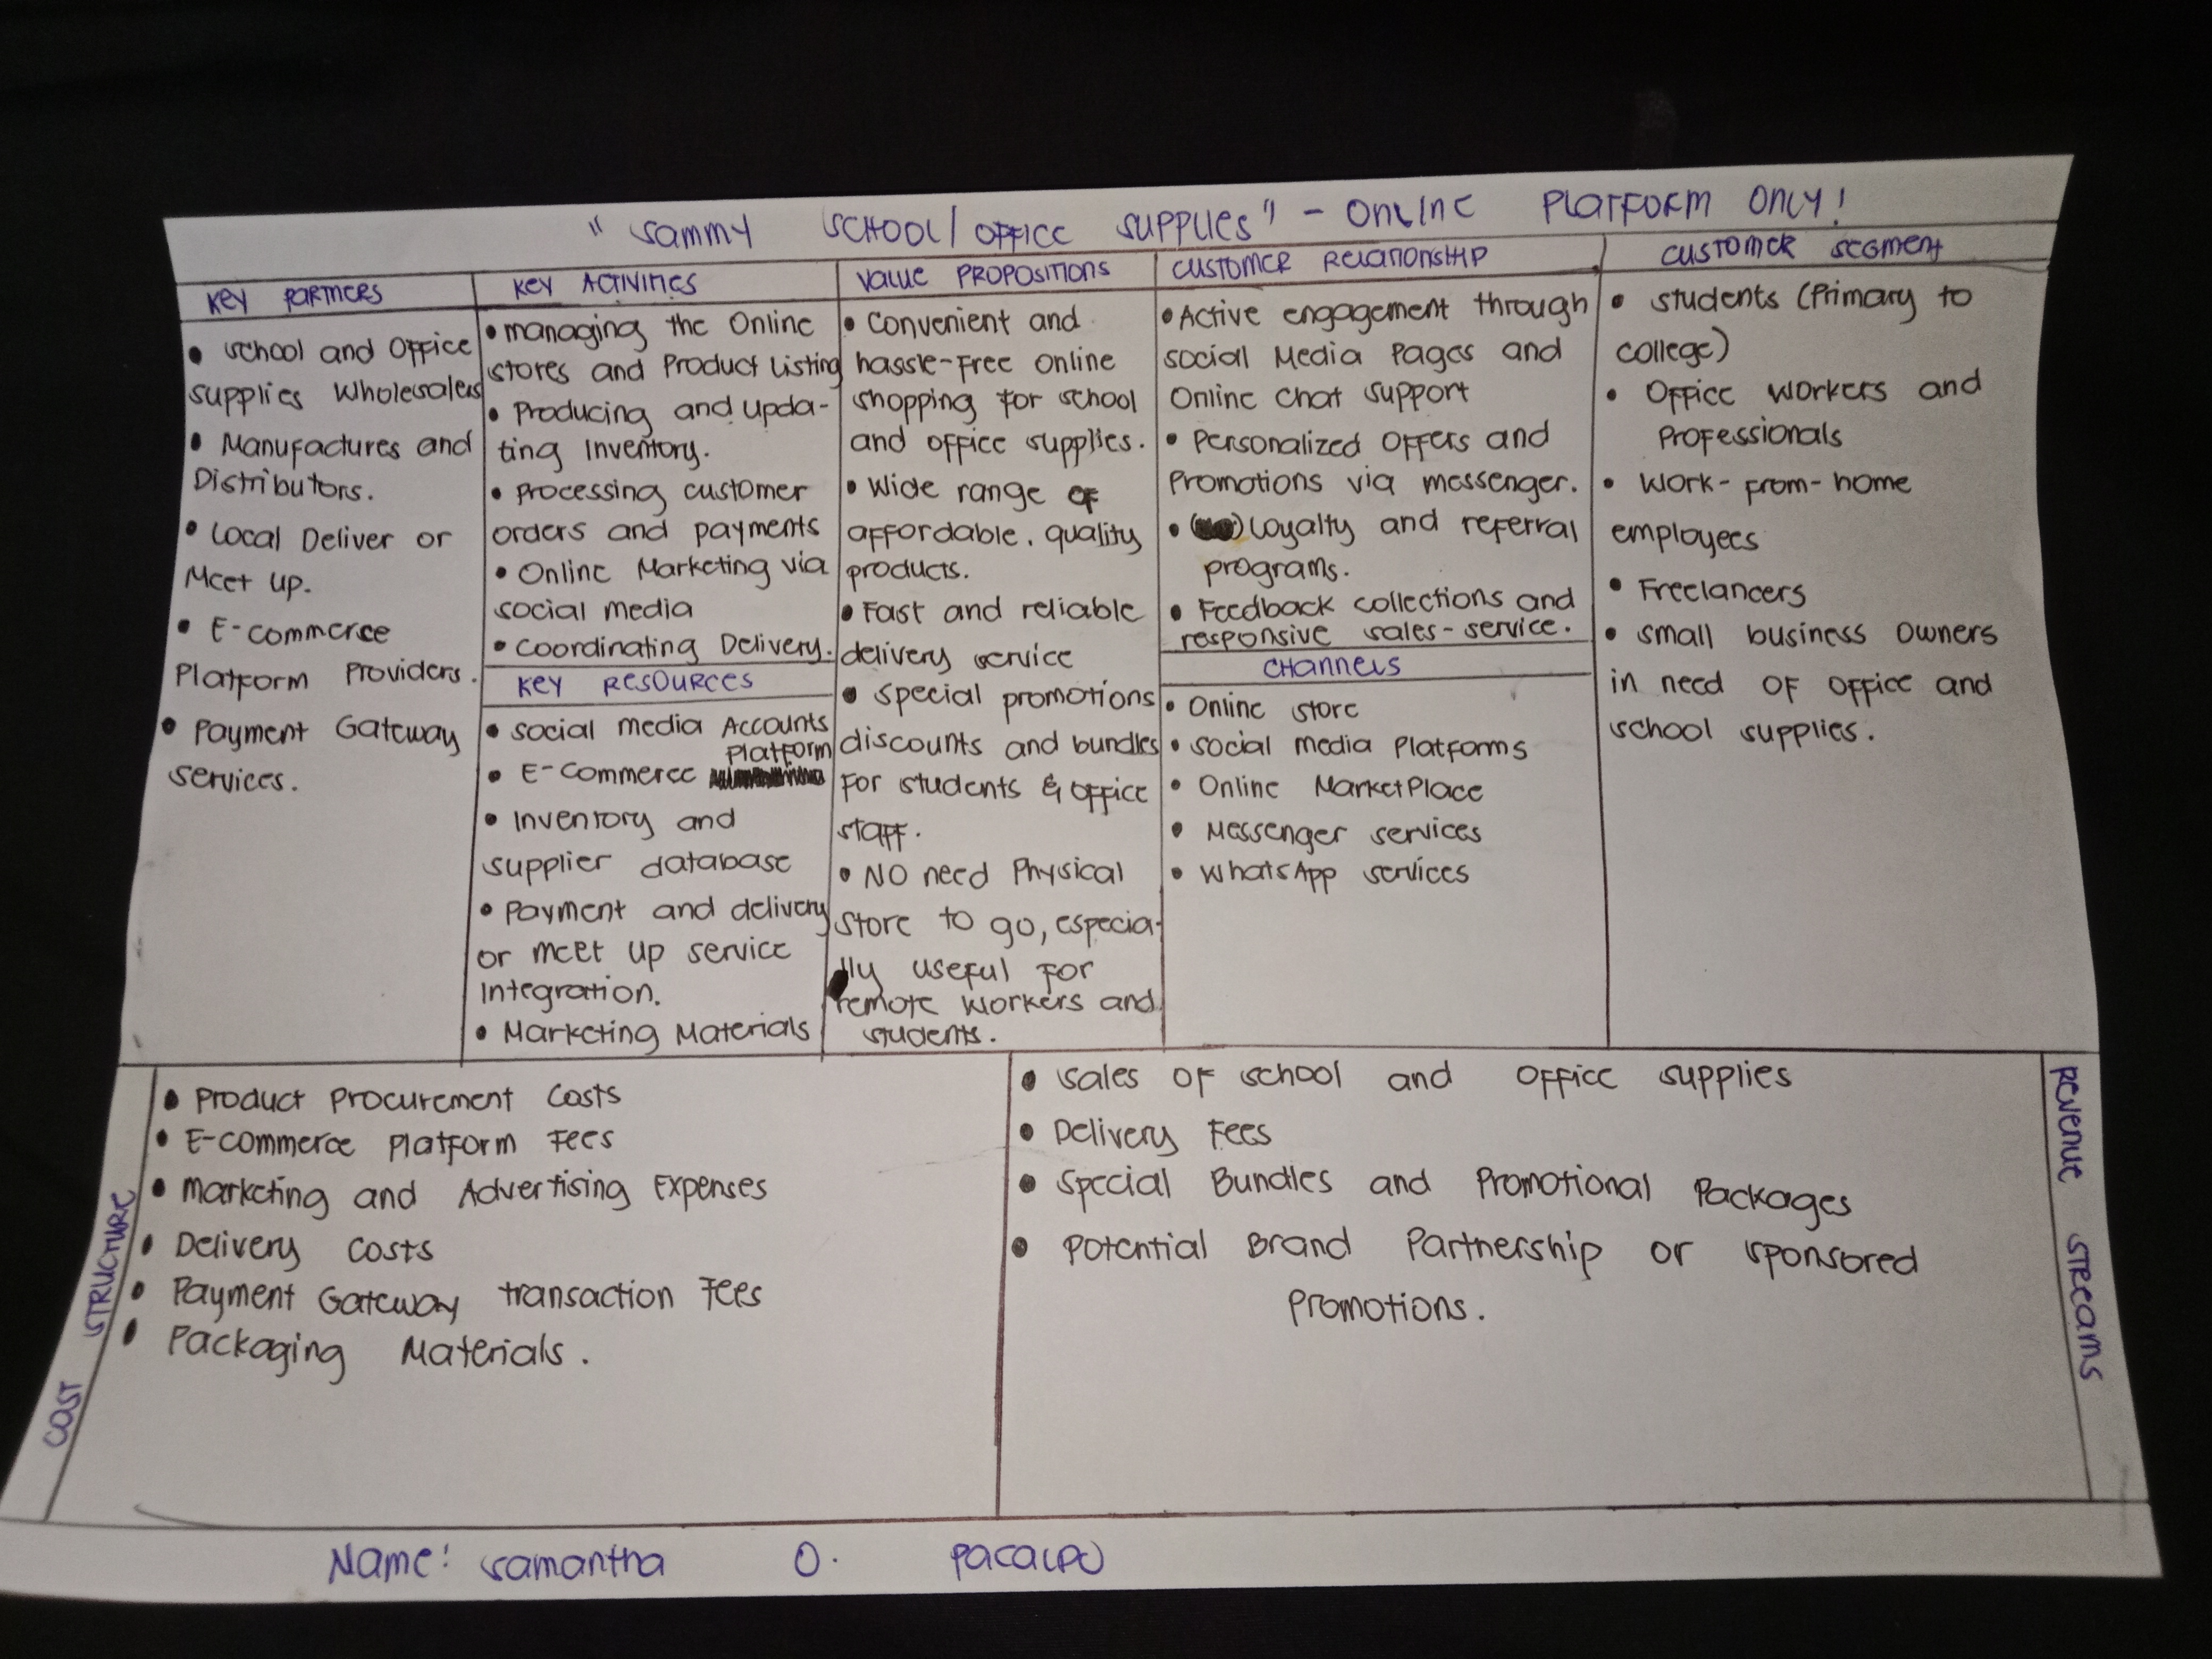 "Sammy School/Office Supplies" - Online Platform Only!
Key Partners
• School and Office
supplies Wholesalers
• Manufactures and
Distributors.
• Local Deliver or
Meet up.
• E-commerce
Platform Providers.
• Payment Gateway
services.
Key Activities
• managing the Online
stores and Product Listing
• Producing and upda-
ting Inventory.
• Processing customer
orders and payments
• Online Marketing via
social media
• Coordinating Delivery.
Key Resources
• Social media Accounts
Platform
• E-Commerce
• Inventory and
supplier database
• Payment and delivery
or meet up service
Integration.
• Marketing Materials
Value Propositions
• Convenient and
hassle-free Online
shopping for school
and office supplies.
• Wide range of
affordable. quality
products.
• Fast and reliable
delivery service
• Special promotions
discounts and bundles
For students & office
staff.
• No need Physical
store to go, especia-
lly useful for
remote workers and
students.
Customer Relationship
• Active engagement through
social Media Pages and
Online chat support
• Personalized Offers and
Promotions via messenger.
• Loyalty and referral
programs.
• Feedback collections and
responsive sales-service.
Channels
• Online store
• Social media Platforms
• Online MarketPlace
• Messenger services
• WhatsApp services
Customer Segment
• Students (Primary to
college)
• Office workers and
Professionals
• Work-from-home
employees
• Freelancers
• Small business owners
in need of office and
school supplies.
Cost Structure
• Product Procurement Costs
• E-commerce Platform Fees
• Marketing and Advertising Expenses
• Delivery costs
• Payment Gateway transaction Fees
• Packaging Materials.
• Sales of school and office supplies
• Delivery Fees
• Special Bundles and Promotional Packages
• Potential Brand Partnership or sponsored
Promotions.
Revenue Streams
Name: Samantha O.